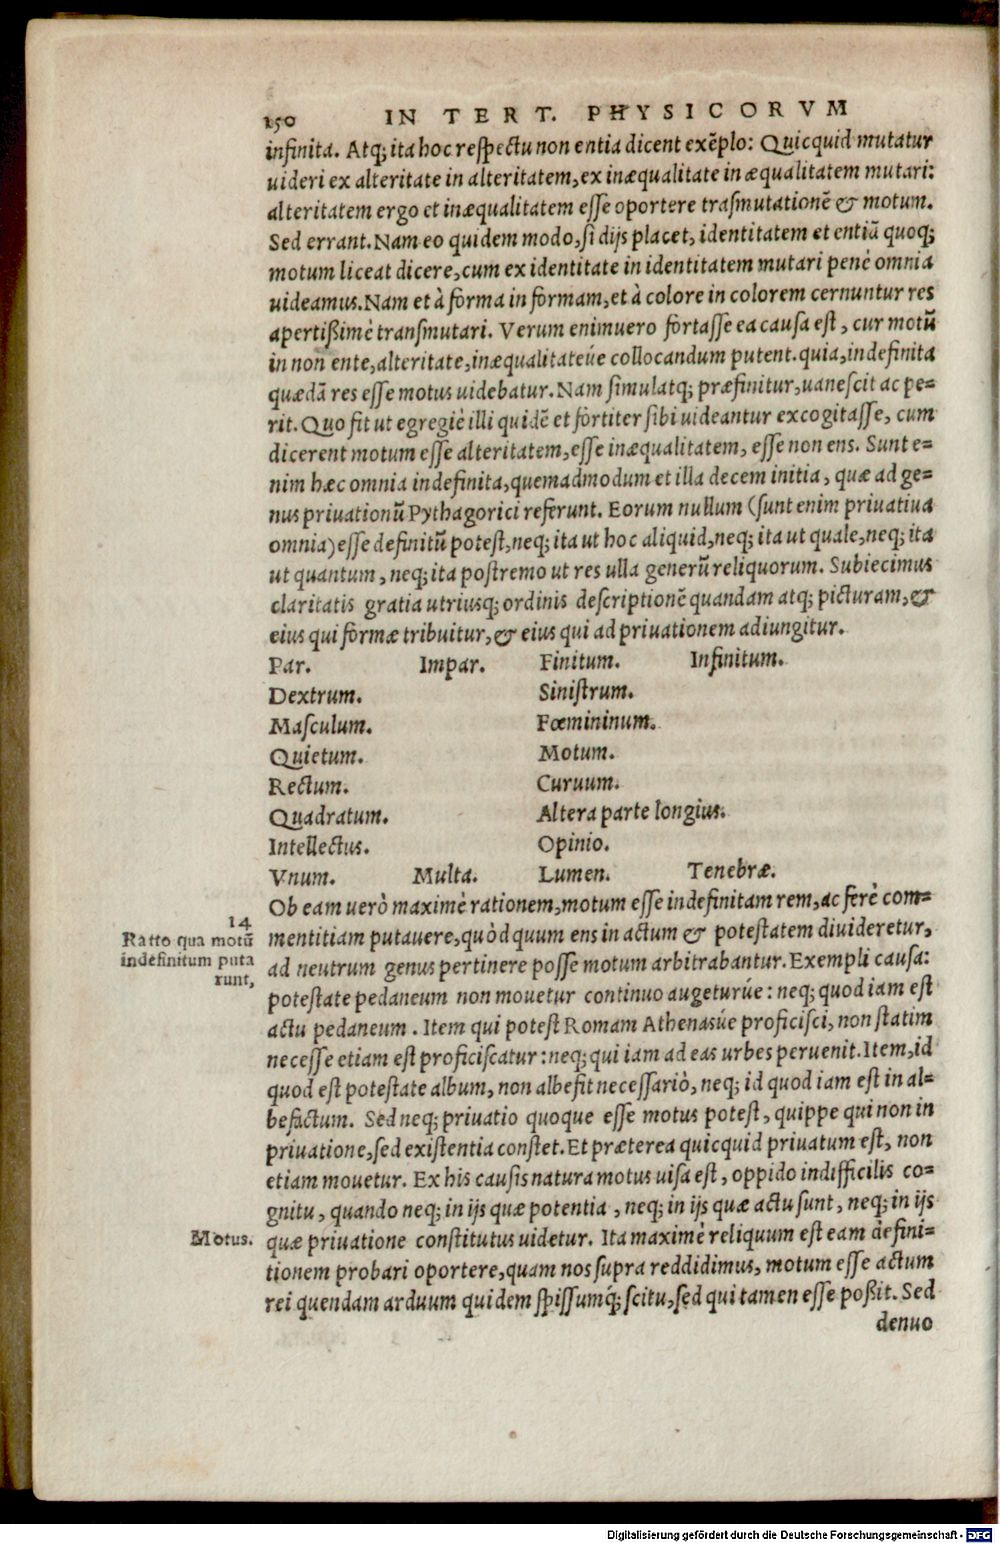 150 IN TERT. PHYSICORVM
infinita. Atq; ita hoc respectu non entia dicent exẽplo: Quicquid mutatur
uideri ex alteritate in alteritatem, ex inæqualitate in æqualitatem mutari:
alteritatem ergo et inæqualitatem esse oportere trāsmutationẽ & motum.
Sed errant. Nam eo quidem modo, si dijs placet, identitatem et entiā quoq;
motum liceat dicere, cum ex identitate in identitatem mutari penè omnia
uideamus. Nam et à forma in formam, et à colore in colorem cernuntur res
apertißimè transmutari. Verum enimuero fortasse ea causa est, cur motū
in non ente, alteritate, inæqualitateúe collocandum putent. quia, indefinita
quædā res esse motus uidebatur. Nam simulatq; præfinitur, uanescit ac pe-
rit. Quo fit ut egregiè illi quidẽ et fortiter sibi uideantur excogitasse, cum
dicerent motum esse alteritatem, esse inæqualitatem, esse non ens. Sunt e-
nim hæc omnia indefinita, quemadmodum et illa decem initia, quæ ad ge-
nus priuationū Pythagorici referunt. Eorum nullum (sunt enim priuatiua
omnia) esse definitū potest, neq; ita ut hoc aliquid, neq; ita ut quale, neq; ita
ut quantum, neq; ita postremo ut res ulla generū reliquorum. Subiecimus
claritatis gratia utriusq; ordinis descriptionẽ quandam atq; picturam, &
eius qui formæ tribuitur, & eius qui ad priuationem adiungitur.
Par. Impar. Finitum. Infinitum.
Dextrum. Sinistrum.
Masculum. Fœmininum.
Quietum. Motum.
Rectum. Curuum.
Quadratum. Altera parte longius.
Intellectus. Opinio.
Vnum. Multa. Lumen. Tenebræ.
Ob eam uerò maximè rationem, motum esse indefinitam rem, ac ferè com-
14
Ratio qua motū
indefinitum puta
runt,
mentitiam putauere, quòd quum ens in actum & potestatem diuideretur,
ad neutrum genus pertinere posse motum arbitrabantur. Exempli causa:
potestate pedaneum non mouetur continuo augeturúe: neq; quod iam est
actu pedaneum. Item qui potest Romam Athenasúe proficisci, non statim
necesse etiam est proficiscatur: neq; qui iam ad eas urbes peruenit. Item, id
quod est potestate album, non albefit necessariò, neq; id quod iam est in al-
befactum. Sed neq; priuatio quoque esse motus potest, quippe qui non in
priuatione, sed existentia constet. Et præterea quicquid priuatum est, non
etiam mouetur. Ex his causis natura motus uisa est, oppido indifficilis co-
gnitu, quando neq; in ijs quæ potentia, neq; in ijs quæ actu sunt, neq; in ijs
Motus.
quæ priuatione constitutus uidetur. Ita maximè reliquum est eam defini-
tionem probari oportere, quam nos supra reddidimus, motum esse actum
rei quendam arduum quidem spissumq; scitu, sed qui tamen esse poßit. Sed
denuo
Digitalisierung gefördert durch die Deutsche Forschungsgemeinschaft - DFG